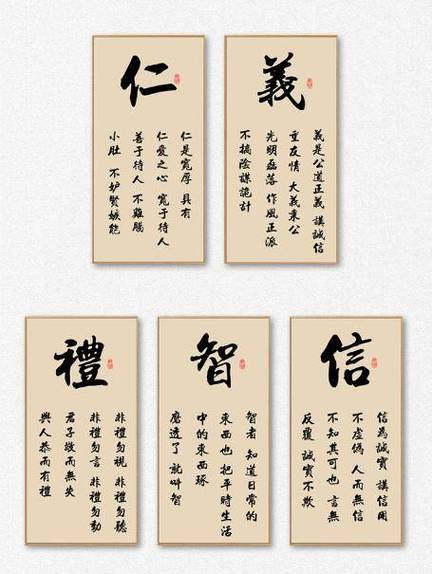 仁
仁是寬厚 具有
仁愛之心 寬于待人
善于待人 不雞腸
小肚 不妒賢嫉能
義
義是公道正義 講誠信
重友情 大義秉公
光明磊落 作風正派
不搞陰謀詭計
禮
非禮勿視 非禮勿聽
非禮勿言 非禮勿動
君子敬而無失
與人恭而有禮
智
智者 知道日常的
東西也把平時生活
中的東西琢
磨透了 就叫智
信
信為誠實 講信用
不虛僞 人而無信
不知其可也 言無
反覆 誠實不欺